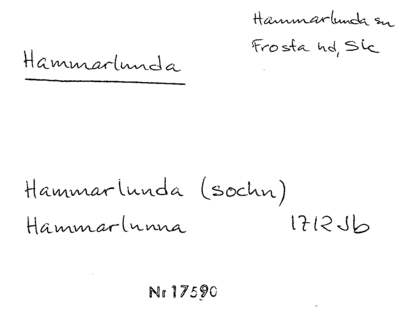 Hammarlunda sn
Frosta hd, Sk
Hammarlunda
Hammarlunda (sochn)
Hammarlunna 1712 Jb
Nr 17590